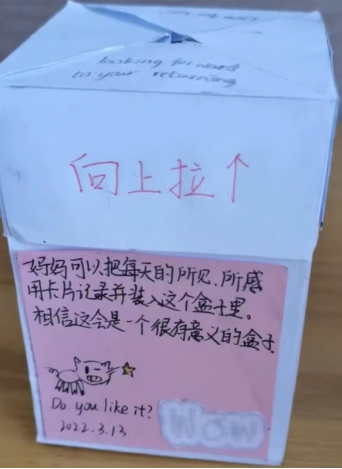 looking forward
to your returning
向上拉↑
妈妈可以把每天的所见、所感
用卡片记录并装入这个盒子里。
相信这会是一个很有意义的盒子
Do you like it?
2022.3.13
Wow